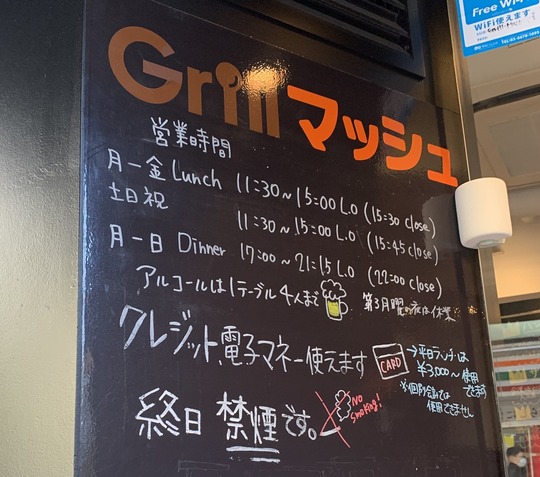 Free Wi-Fi
WiFi使えます。
Grill マッシュ
営業時間
月-金 Lunch 11:30~15:00 L.O (15:30 close)
土日祝 11:30~15:00 L.O (15:45 close)
月-日 Dinner 17:00~21:15 L.O (22:00 close)
アルコールは1テーブル4人まで 第3月曜の夜は休業
クレジット、電子マネー使えます CARD →平日ランチは
¥3,000~使用
できます
※個別会計では
使用できません
終日 禁煙です。 NO
Smoking!